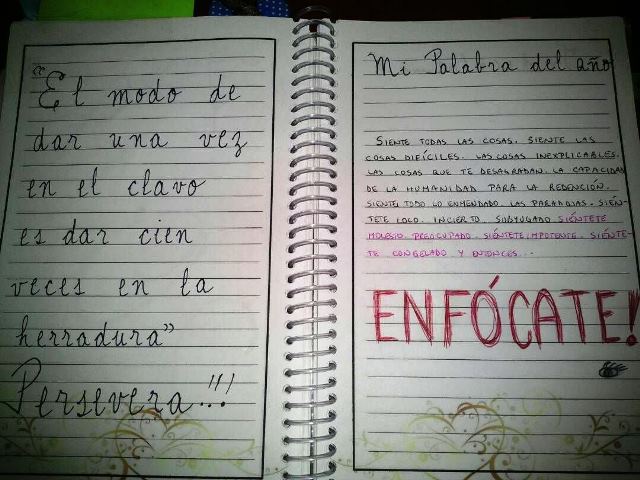 "El modo de
dar una vez
en el clavo
es dar cien
veces en la
herradura"
Persevera...!!!
Mi Palabra del año
SIENTE TODAS LAS COSAS. SIENTE LAS
COSAS DIFÍCILES. LAS COSAS INEXPLICABLES.
LAS COSAS QUE TE DESAGRADAN. LA CAPACIDAD
DE LA HUMANIDAD PARA LA REDENCIÓN.
SIENTE TODO LO ENMENDADO. LAS PARADOJAS. SIÉN-
TETE LOCO. INCIERTO. SUBYUGADO SIÉNTETE
MOLESTO. PREOCUPADO. SIÉNTETE IMPOTENTE. SIÉNTE-
TE CONGELADO Y ENTONCES...
ENFÓCATE!